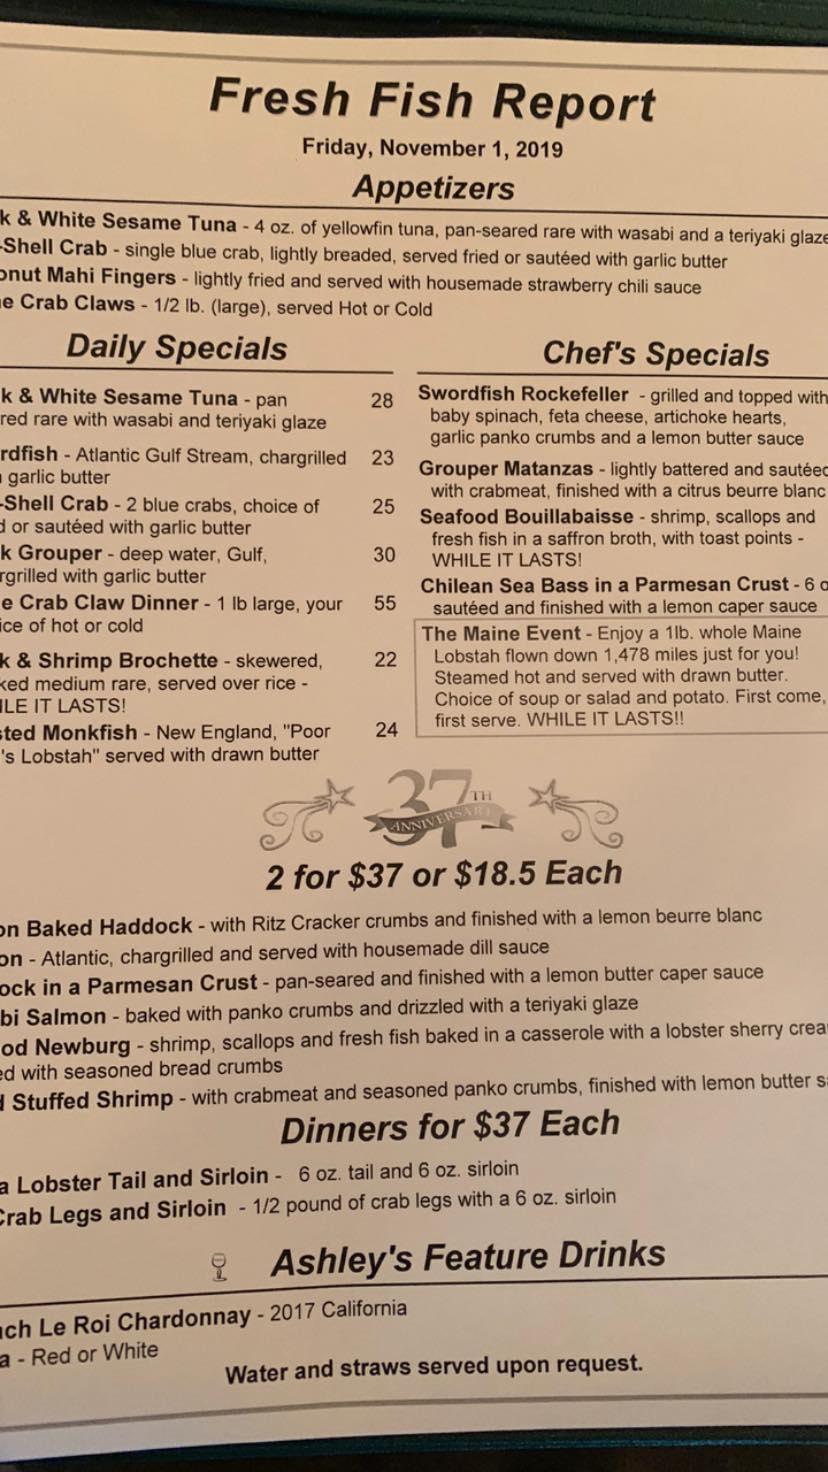 Fresh Fish Report
Friday, November 1, 2019
Appetizers
k & White Sesame Tuna - 4 oz. of yellowfin tuna, pan-seared rare with wasabi and a teriyaki glaze
-Shell Crab - single blue crab, lightly breaded, served fried or sautéed with garlic butter
onut Mahi Fingers - lightly fried and served with housemade strawberry chili sauce
e Crab Claws - 1/2 lb. (large), served Hot or Cold
Daily Specials
k & White Sesame Tuna - pan 28
red rare with wasabi and teriyaki glaze
rdfish - Atlantic Gulf Stream, chargrilled 23
garlic butter
-Shell Crab - 2 blue crabs, choice of 25
d or sautéed with garlic butter
k Grouper - deep water, Gulf, 30
rgrilled with garlic butter
e Crab Claw Dinner - 1 lb large, your 55
ice of hot or cold
k & Shrimp Brochette - skewered, 22
ked medium rare, served over rice -
ILE IT LASTS!
sted Monkfish - New England, "Poor 24
's Lobstah" served with drawn butter
Chef's Specials
Swordfish Rockefeller - grilled and topped with
baby spinach, feta cheese, artichoke hearts,
garlic panko crumbs and a lemon butter sauce
Grouper Matanzas - lightly battered and sautéed
with crabmeat, finished with a citrus beurre blanc
Seafood Bouillabaisse - shrimp, scallops and
fresh fish in a saffron broth, with toast points -
WHILE IT LASTS!
Chilean Sea Bass in a Parmesan Crust - 6 o
sautéed and finished with a lemon caper sauce
The Maine Event - Enjoy a 1lb. whole Maine
Lobstah flown down 1,478 miles just for you!
Steamed hot and served with drawn butter.
Choice of soup or salad and potato. First come,
first serve. WHILE IT LASTS!!
37TH
ANNIVERSARY
2 for $37 or $18.5 Each
on Baked Haddock - with Ritz Cracker crumbs and finished with a lemon beurre blanc
on - Atlantic, chargrilled and served with housemade dill sauce
ock in a Parmesan Crust - pan-seared and finished with a lemon butter caper sauce
bi Salmon - baked with panko crumbs and drizzled with a teriyaki glaze
od Newburg - shrimp, scallops and fresh fish baked in a casserole with a lobster sherry crea
ed with seasoned bread crumbs
d Stuffed Shrimp - with crabmeat and seasoned panko crumbs, finished with lemon butter s
Dinners for $37 Each
a Lobster Tail and Sirloin - 6 oz. tail and 6 oz. sirloin
Crab Legs and Sirloin - 1/2 pound of crab legs with a 6 oz. sirloin
Ashley's Feature Drinks
ch Le Roi Chardonnay - 2017 California
a - Red or White
Water and straws served upon request.